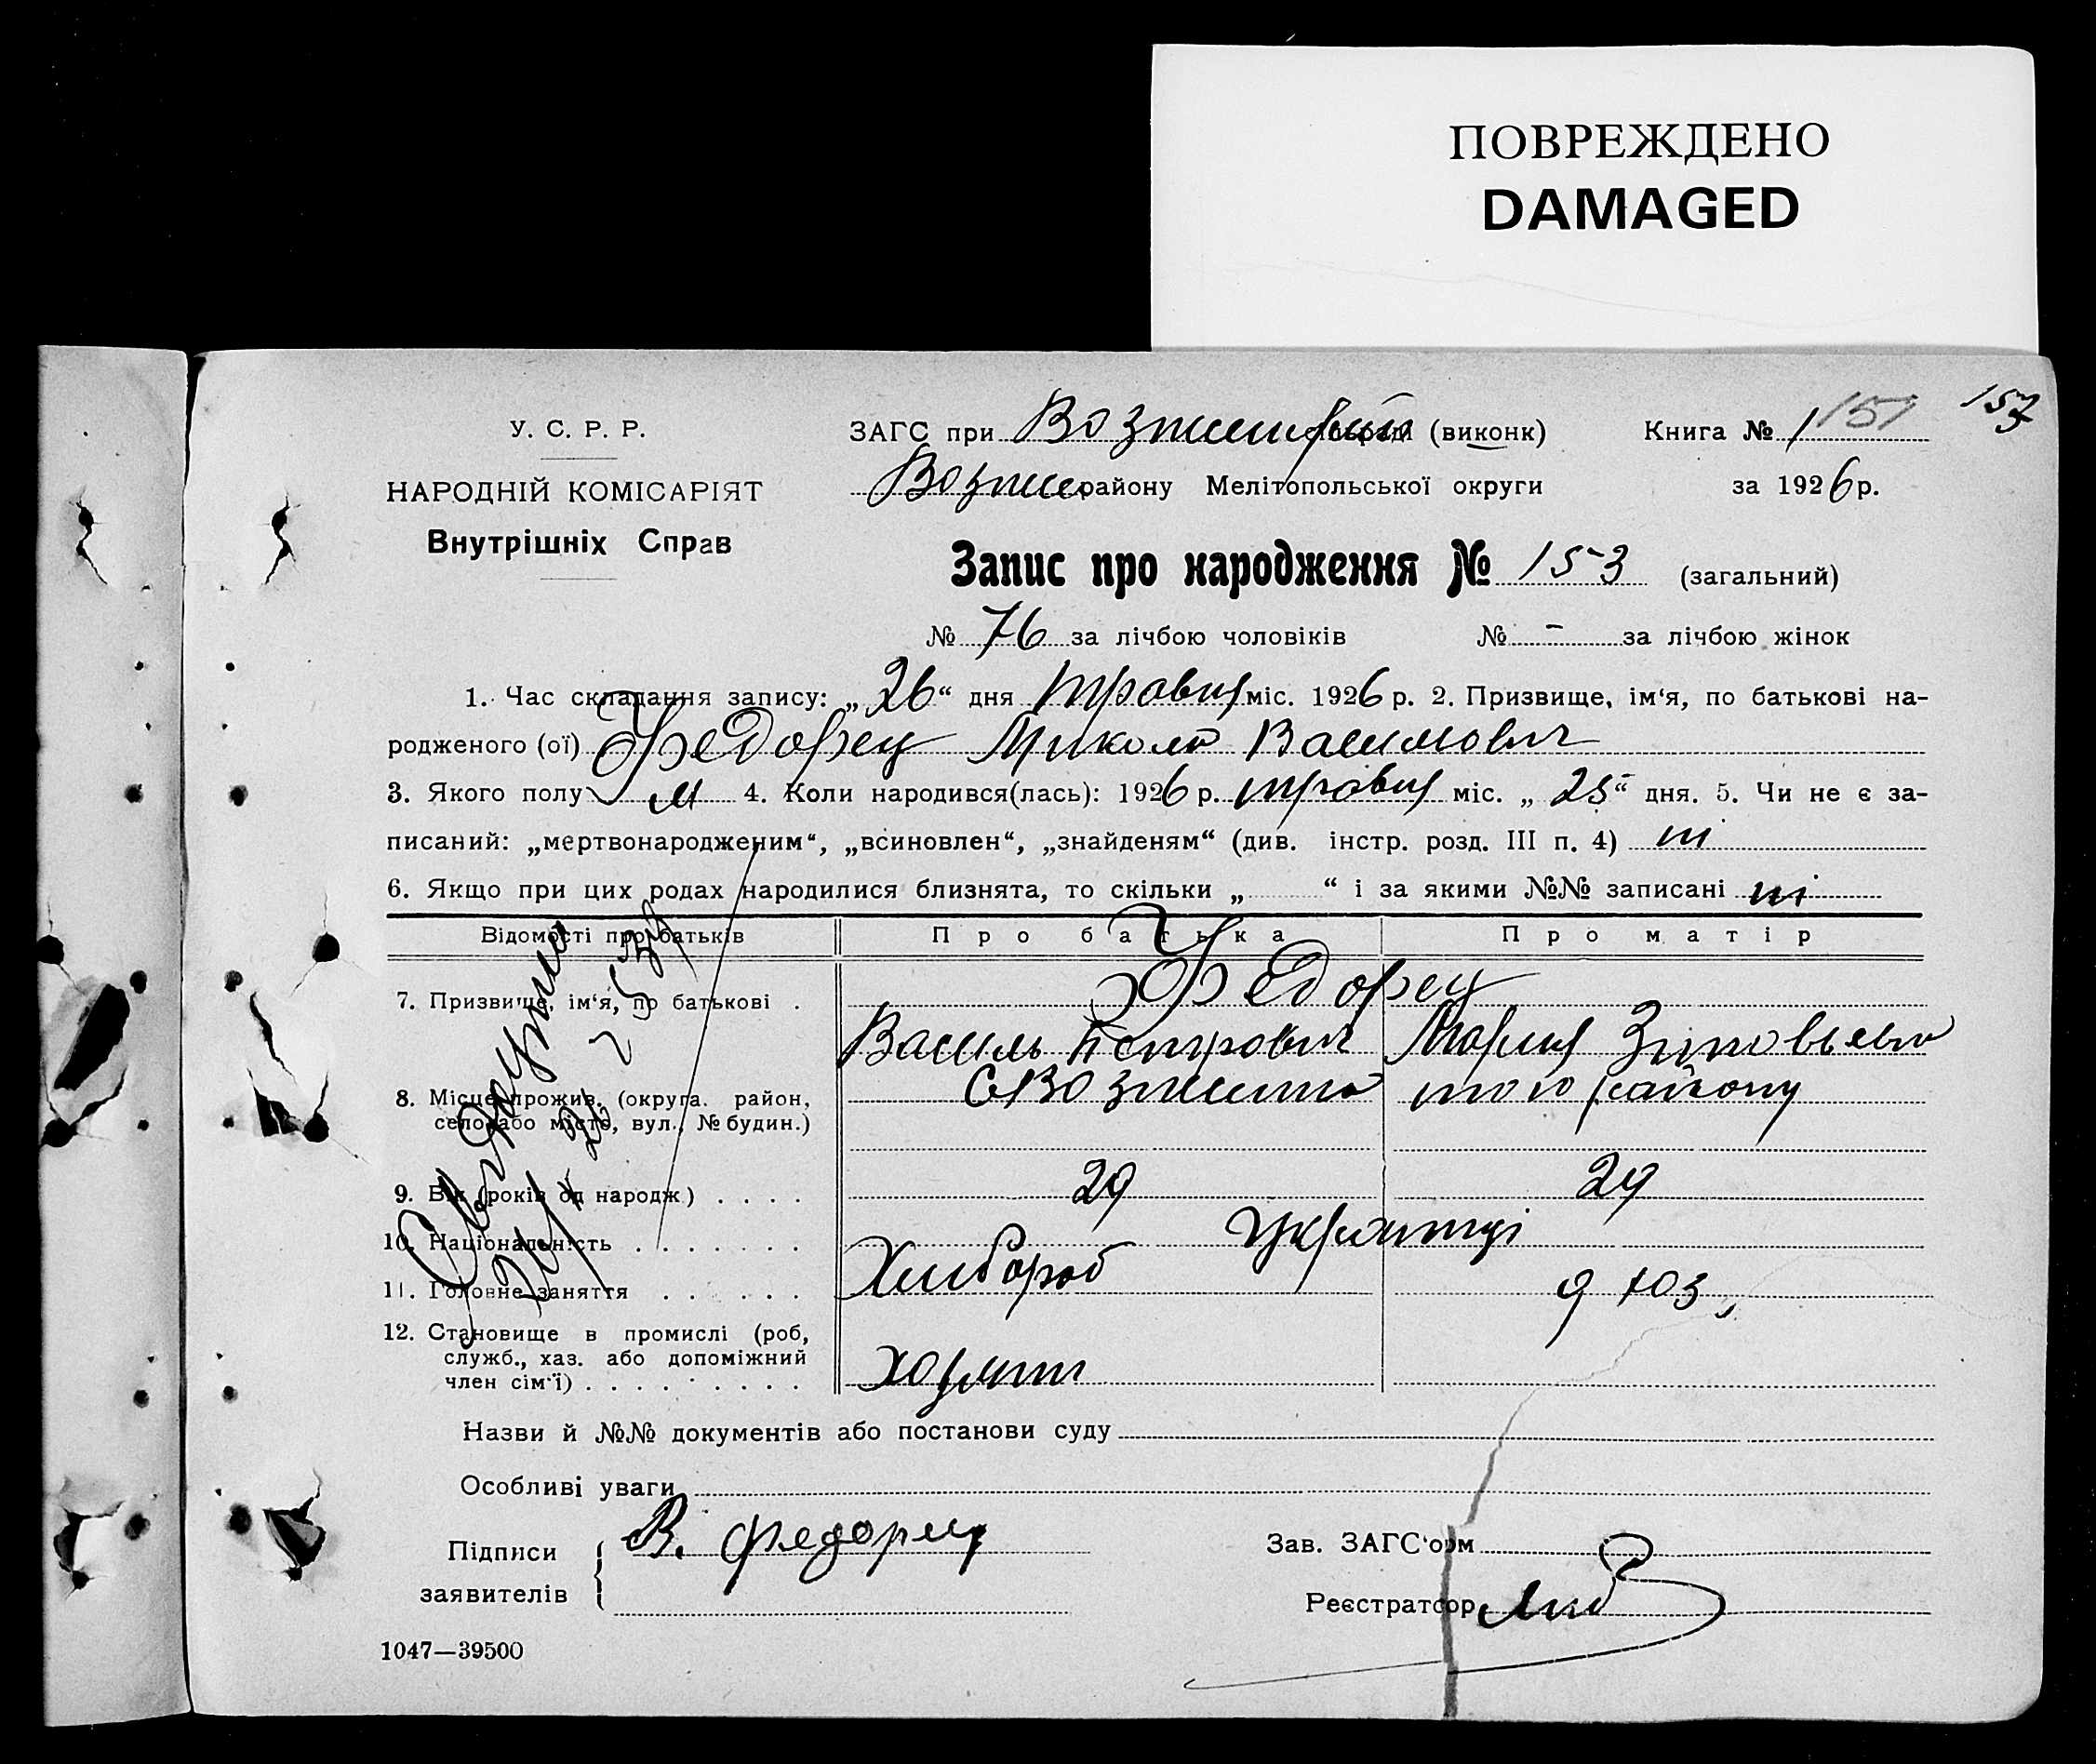 ПОВРЕЖДЕНО
DAMAGED
157
У. С. Р. Р.
НАРОДНІЙ КОМІСАРІЯТ
Внутрішніх Справ
ЗАГС при (виконк)
Книга № 1 151
району Мелітопольської округи
за 1926 р.
Запис про народження № 153 (загальний)
№ 76 за лічбою чоловіків № - за лічбою жінок
1. Час складання запису: „26“ дня травня міс. 1926 р. 2. Призвище, ім‘я, по батькові на-
родженого (ої) Федорец Микола Васильович
3. Якого полу м 4. Коли народився(лась): 1926 р. травня міс. „25“ дня. 5. Чи не є за-
писаний: „мертвонародженим“, „всиновлен“, „знайденям“ (див. інстр. розд. III п. 4) ні
6. Якщо при цих родах народилися близнята, то скільки „ “ і за якими №№ записані ні
Відомості про батьків Про батька Про матір
7. Призвище, ім‘я, по батькові . Федорец
Василь Петрович Мария Зиновьевна
8. Місце прожив. (округа. район, село або місто, вул., № будин.)
того району
9. Вік (років од народж.) . . . . 29 29
10. Національність . . . . . . . Українці
11. Головне заняття . . . . . . Хлибороб
12. Становище в промислі (роб, служб., хаз. або допоміжний член сім‘ї) . . . . . . . . .
Назви й №№ документів або постанови суду
Особливі уваги
Підписи заявителів В. Федорец
Зав. ЗАГС‘ом
Реєстратор
1047—39500